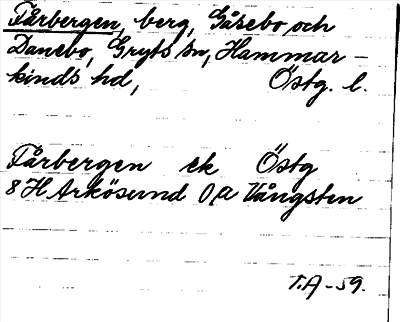 Fårbergen, berg, Gåsebo och
Danebo, Gryts sn, Hammar-
kinds hd, Östg. l.
Fårbergen ek Östg
8 H Arkösund 0,a Vångsten
T.A-59.